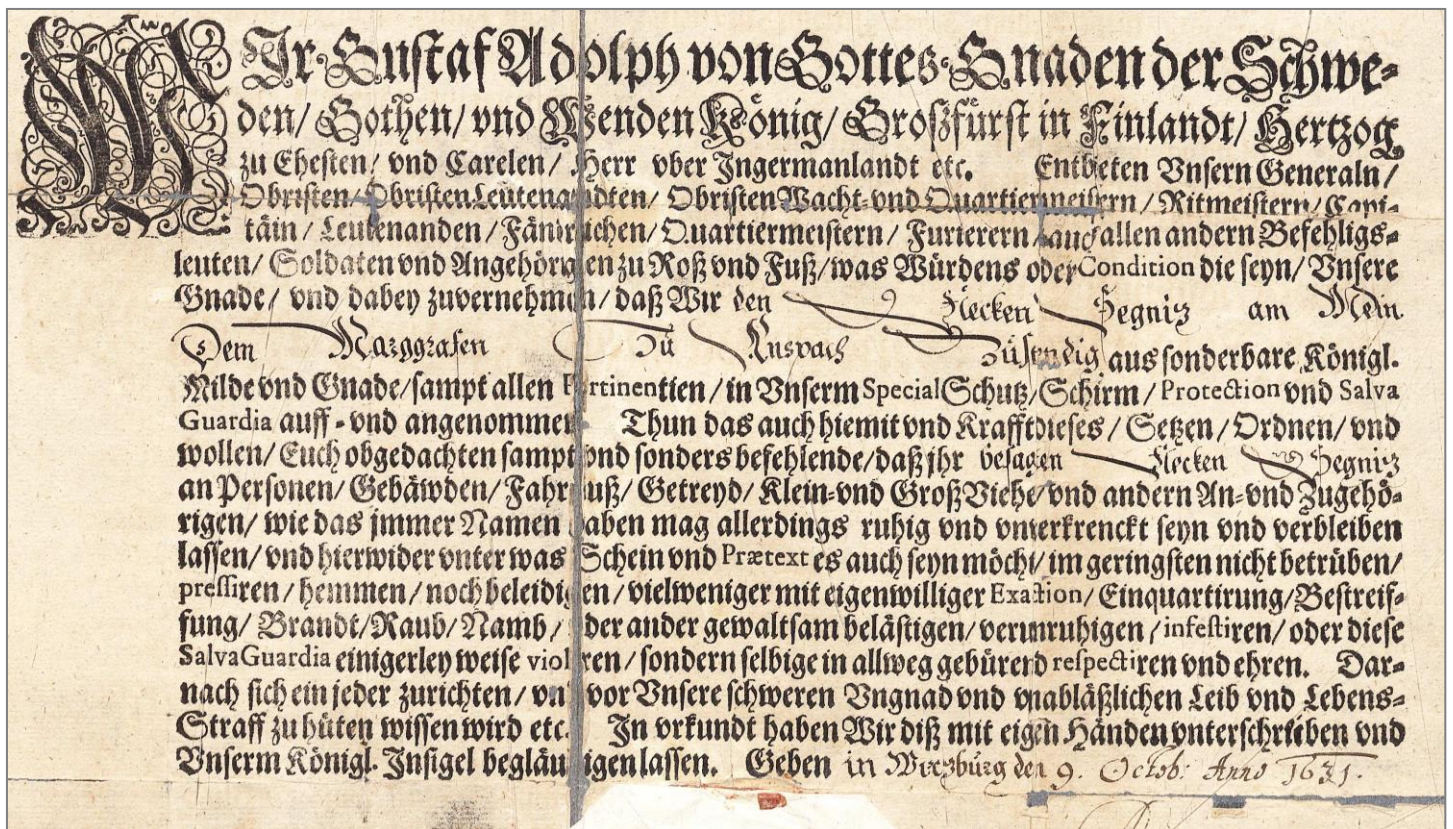 WIr Gustaf Adolph von Gottes Gnaden der Schwe-
den/ Gothen/ vnd Wenden König/ Großfürst in Finlandt/ Hertzog
zu Ehesten/ vnd Carelen/ Herr vber Ingermanlandt etc. Entbieten Vnsern Generaln/
Obristen/ Obristen Leutenandten/ Obristen Wacht- vnd Quartiermeistern/ Ritmeistern/ Capi-
täin/ Leutenanden/ Fändrichen/ Quartiermeistern/ Furierern/ auch allen andern Befehligs-
leuten/ Soldaten vnd Angehörigen zu Roß vnd Fuß/ was Würdens oder Condition die seyn/ Vnsere
Gnade/ vnd dabey zuvernehmen/ daß Wir den Flecken Segnitz am Mein
Dem Marggrafen Zu Anspach Zustendig aus sonderbare Königl.
Milde vnd Gnade/ sampt allen Pertinentien/ in Vnserm Special Schutz/ Schirm/ Protection vnd Salva
Guardia auff- vnd angenommen Thun das auch hiemit vnd Krafft dieses/ Setzen/ Ordnen/ vnd
wollen/ Euch obgedachten sampt vnd sonders befehlende/ daß jhr besagten Flecken Segnitz
an Personen/ Gebäwden/ Fahrnuß/ Getreyd/ Klein- vnd Groß Viehe/ vnd andern An- vnd Zugehö-
rigen/ wie das jmmer Namen haben mag allerdings ruhig vnd vnterkrenckt seyn vnd verbleiben
lassen/ vnd hierwider vnter was Schein vnd Prætext es auch seyn möcht/ im geringsten nicht betrüben/
pressiren/ hemmen/ noch beleidigen/ vielweniger mit eigenwilliger Exaction/ Einquartirung/ Bestreif-
fung/ Brandt/ Raub/ Namb/ oder ander gewaltsam belästigen/ verunruhigen/ infestiren/ oder diese
Salva Guardia einigerley weise violiren/ sondern selbige in allweg gebürend respectiren vnd ehren. Dar-
nach sich ein jeder zurichten/ vnd vor Vnsere schweren Vngnad vnd vnabläßlichen Leib vnd Lebens-
Straff zu hüten wissen wird etc. In vrkundt haben Wir diß mit eigen Händen vnterschrieben vnd
Vnserm Königl. Insigel begläubigen lassen. Geben in Wirtzburg den 9. Octob: Anno 1631.